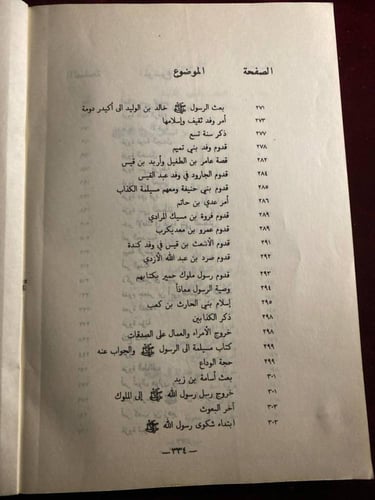 الصفحة الموضوع
٢٧١ بعث الرسول ﷺ خالد بن الوليد الى أكيدر دومة
٢٧٣ أمر وفد ثقيف وإسلامها
٢٧٧ ذكر سنة تسع
٢٧٨ قدوم وفد بني تميم
٢٨٢ قصة عامر بن الطفيل وأربد بن قيس
٢٨٤ قدوم الجارود في وفد عبد القيس
٢٨٥ قدوم بني حنيفة ومعهم مسيلمة الكذاب
٢٨٦ أمر عدي بن حاتم
٢٨٩ قدوم فروة بن مسيك المرادي
٢٨٩ قدوم عمرو بن معديكرب
٢٩١ قدوم الأشعث بن قيس في وفد كندة
٢٩٢ قدوم صرد بن عبد الله الأزدي
٢٩٣ قدوم رسول ملوك حمير بكتابهم
٢٩٤ وصية الرسول معاذاً
٢٩٥ إسلام بني الحارث بن كعب
٢٩٨ ذكر الكذابين
٢٩٨ خروج الأمراء والعمال على الصدقات
٢٩٩ كتاب مسيلمة الى الرسول ﷺ والجواب عنه
٢٩٩ حجة الوداع
٣٠١ بعث أسامة بن زيد
٣٠١ خروج رسل رسول الله ﷺ إلى الملوك
٣٠٣ آخر البعوث
٣٠٣ ابتداء شكوى رسول الله ﷺ
— ٣٣٤ —